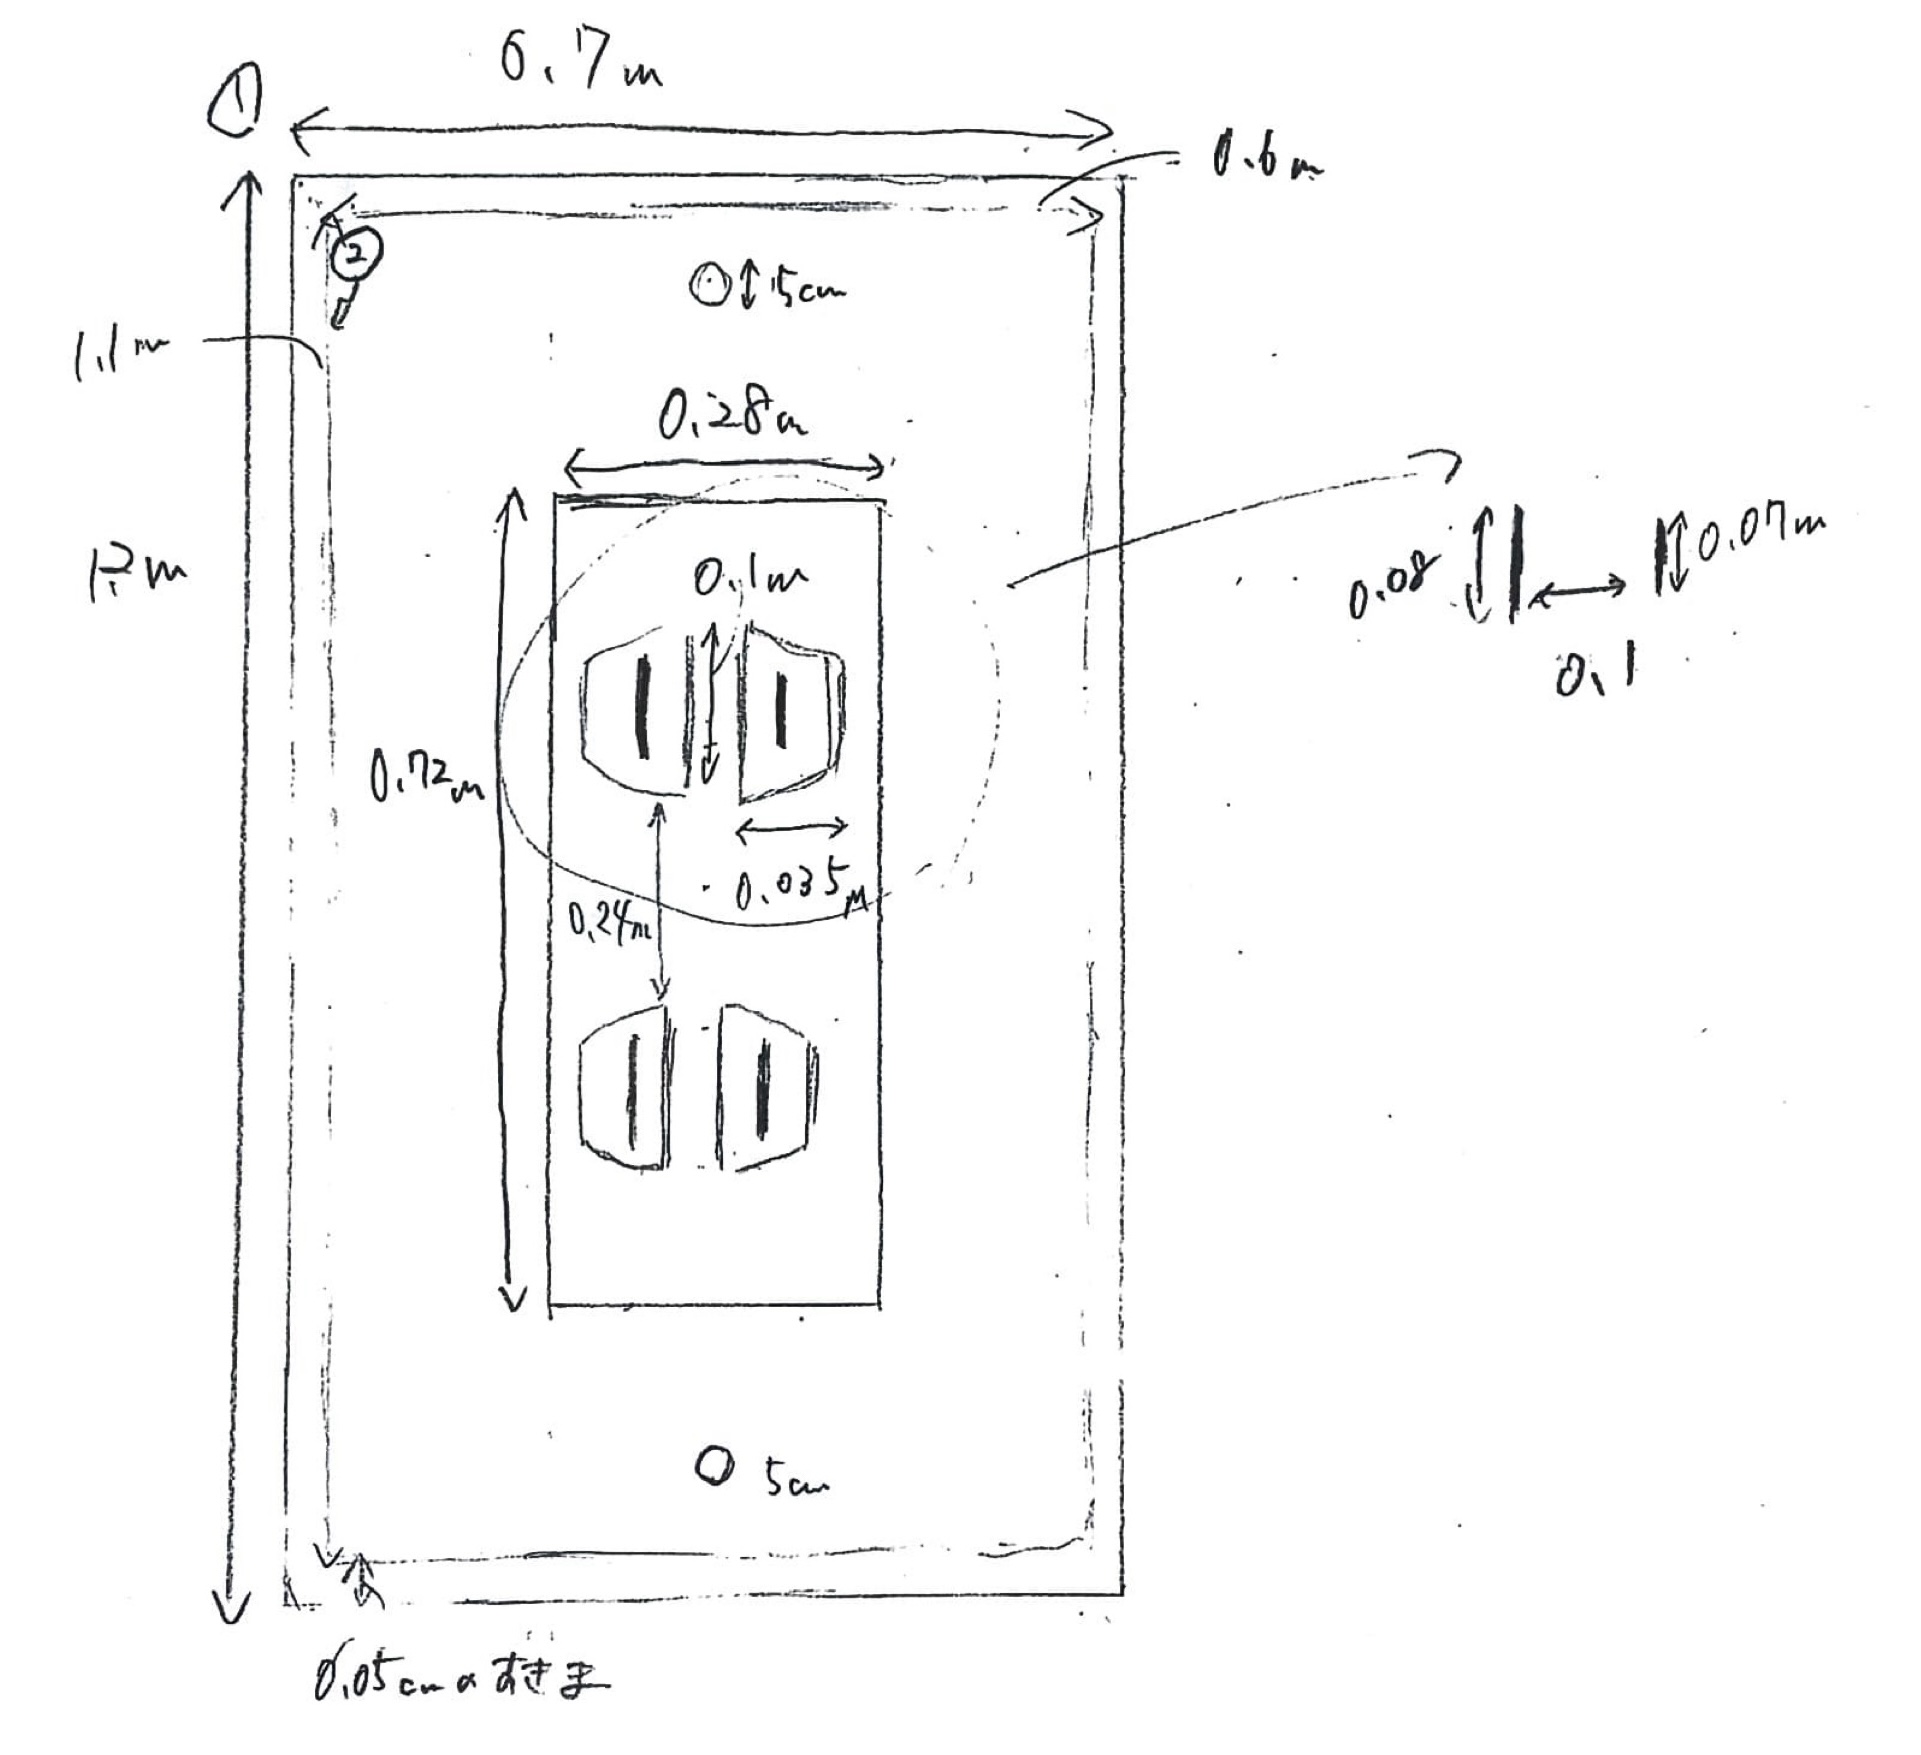 ① 0.7m
0.6m
②
5cm
1.1m
0.28m
1.2m
0.1m
0.08
0.07m
0.1
0.72m
0.035m
0.24m
5cm
0.05cmのすきま